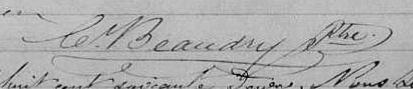 en
C. Beaudry Ptre.
huit cent soixante douze, Nous